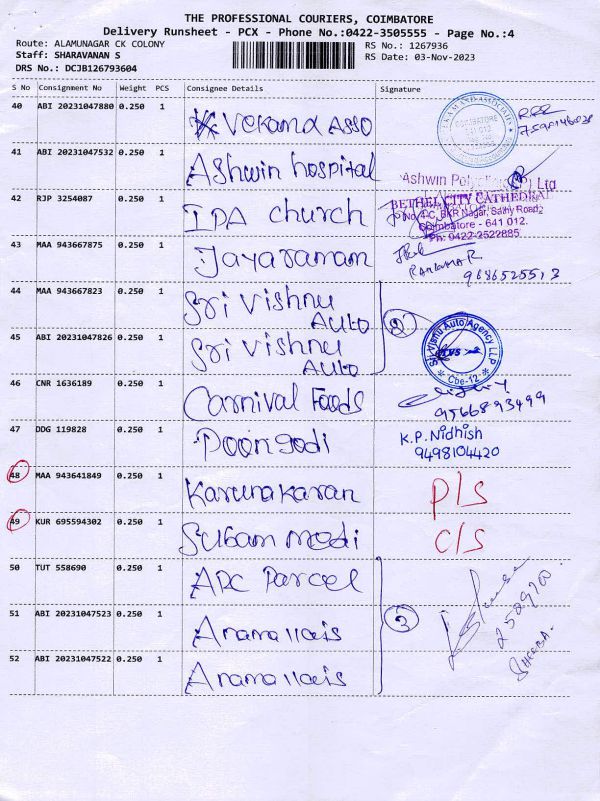 THE PROFESSIONAL COURIERS, COIMBATORE
Delivery Runsheet - PCX - Phone No.:0422-3505555 - Page No.:4
Route: ALAMUNAGAR CK COLONY
Staff: SHARAVANAN S
DRS No.: DCJB126793604
RS No.: 1267936
RS Date: 03-Nov-2023
S No Consignment No Weight PCS Consignee Details Signature
40 ABI 20231047880 0.250 1 Vekamd Asso
COIMBATORE
641 012
41 ABI 20231047532 0.250 1 Ashwin hospital
Ashwin Ltd
42 RJP 3254087 0.250 1 IPA church
BETHEL CITY CATHEDRAL
No.4-C, BKR Nagar, Sathy Road,
Coimbatore - 641 012.
Ph: 0422-2522885
43 MAA 943667875 0.250 1 Jayaramam
9686525513
44 MAA 943667823 0.250 1 Sri Vishnu
Auto
2
45 ABI 20231047826 0.250 1 Sri Vishnu
Auto
Sri Visnu Auto Agency LLP
TVS
Cbe-12
46 CNR 1636189 0.250 1 Carnival Foods
9566893499
47 DDG 119828 0.250 1 Poongodi
K.P. Nidhish
9498104420
48 MAA 943641849 0.250 1 Karunakaran P/S
49 KUR 695594302 0.250 1 Subam medi C/S
50 TUT 558690 0.250 1 ARC Parcel
51 ABI 20231047523 0.250 1 Anamallais
3
SHEEBA.
52 ABI 20231047522 0.250 1 Anamallais